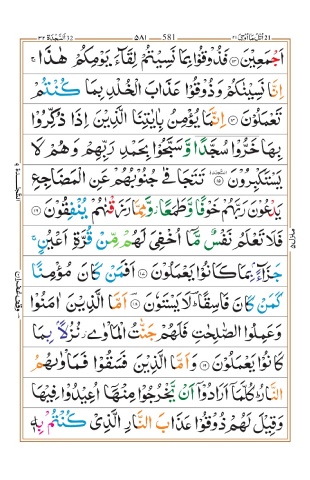 السجدة ٣٢ ٥٨١ 581 اتل مآ اوحی ٢١
اَجْمَعِیْنَ ﴿۱۳﴾ فَذُوْقُوْا بِمَا نَسِیْتُمْ لِقَآءَ یَوْمِكُمْ هٰذَا ۚ
اِنَّا نَسِیْنٰكُمْ وَ ذُوْقُوْا عَذَابَ الْخُلْدِ بِمَا كُنْتُمْ
تَعْمَلُوْنَ ﴿۱۴﴾ اِنَّمَا یُؤْمِنُ بِاٰیٰتِنَا الَّذِیْنَ اِذَا ذُكِّرُوْا
بِهَا خَرُّوْا سُجَّدًا وَّ سَبَّحُوْا بِحَمْدِ رَبِّهِمْ وَهُمْ لَا
یَسْتَكْبِرُوْنَ ﴿۱۵﴾ تَتَجَافٰی جُنُوْبُهُمْ عَنِ الْمَضَاجِعِ
یَدْعُوْنَ رَبَّهُمْ خَوْفًا وَّ طَمَعًا ؗ وَّ مِمَّا رَزَقْنٰهُمْ یُنْفِقُوْنَ ﴿۱۶﴾
فَلَا تَعْلَمُ نَفْسٌ مَّاۤ اُخْفِیَ لَهُمْ مِّنْ قُرَّةِ اَعْیُنٍ ۚ
جَزَآءًۢ بِمَا كَانُوْا یَعْمَلُوْنَ ﴿۱۷﴾ اَفَمَنْ كَانَ مُؤْمِنًا
كَمَنْ كَانَ فَاسِقًا ؔؕ لَا یَسْتَوٗنَ ﴿۱۸﴾ اَمَّا الَّذِیْنَ اٰمَنُوْا
وَعَمِلُوا الصّٰلِحٰتِ فَلَهُمْ جَنّٰتُ الْمَاْوٰی ؗ نُزُلًۢا بِمَا
كَانُوْا یَعْمَلُوْنَ ﴿۱۹﴾ وَ اَمَّا الَّذِیْنَ فَسَقُوْا فَمَاْوٰىهُمُ
النَّارُ ؕ كُلَّمَاۤ اَرَادُوْۤا اَنْ یَّخْرُجُوْا مِنْهَاۤ اُعِیْدُوْا فِیْهَا
وَقِیْلَ لَهُمْ ذُوْقُوْا عَذَابَ النَّارِ الَّذِیْ كُنْتُمْ بِهٖ
السجدة
وقف غفران
منزل ٥